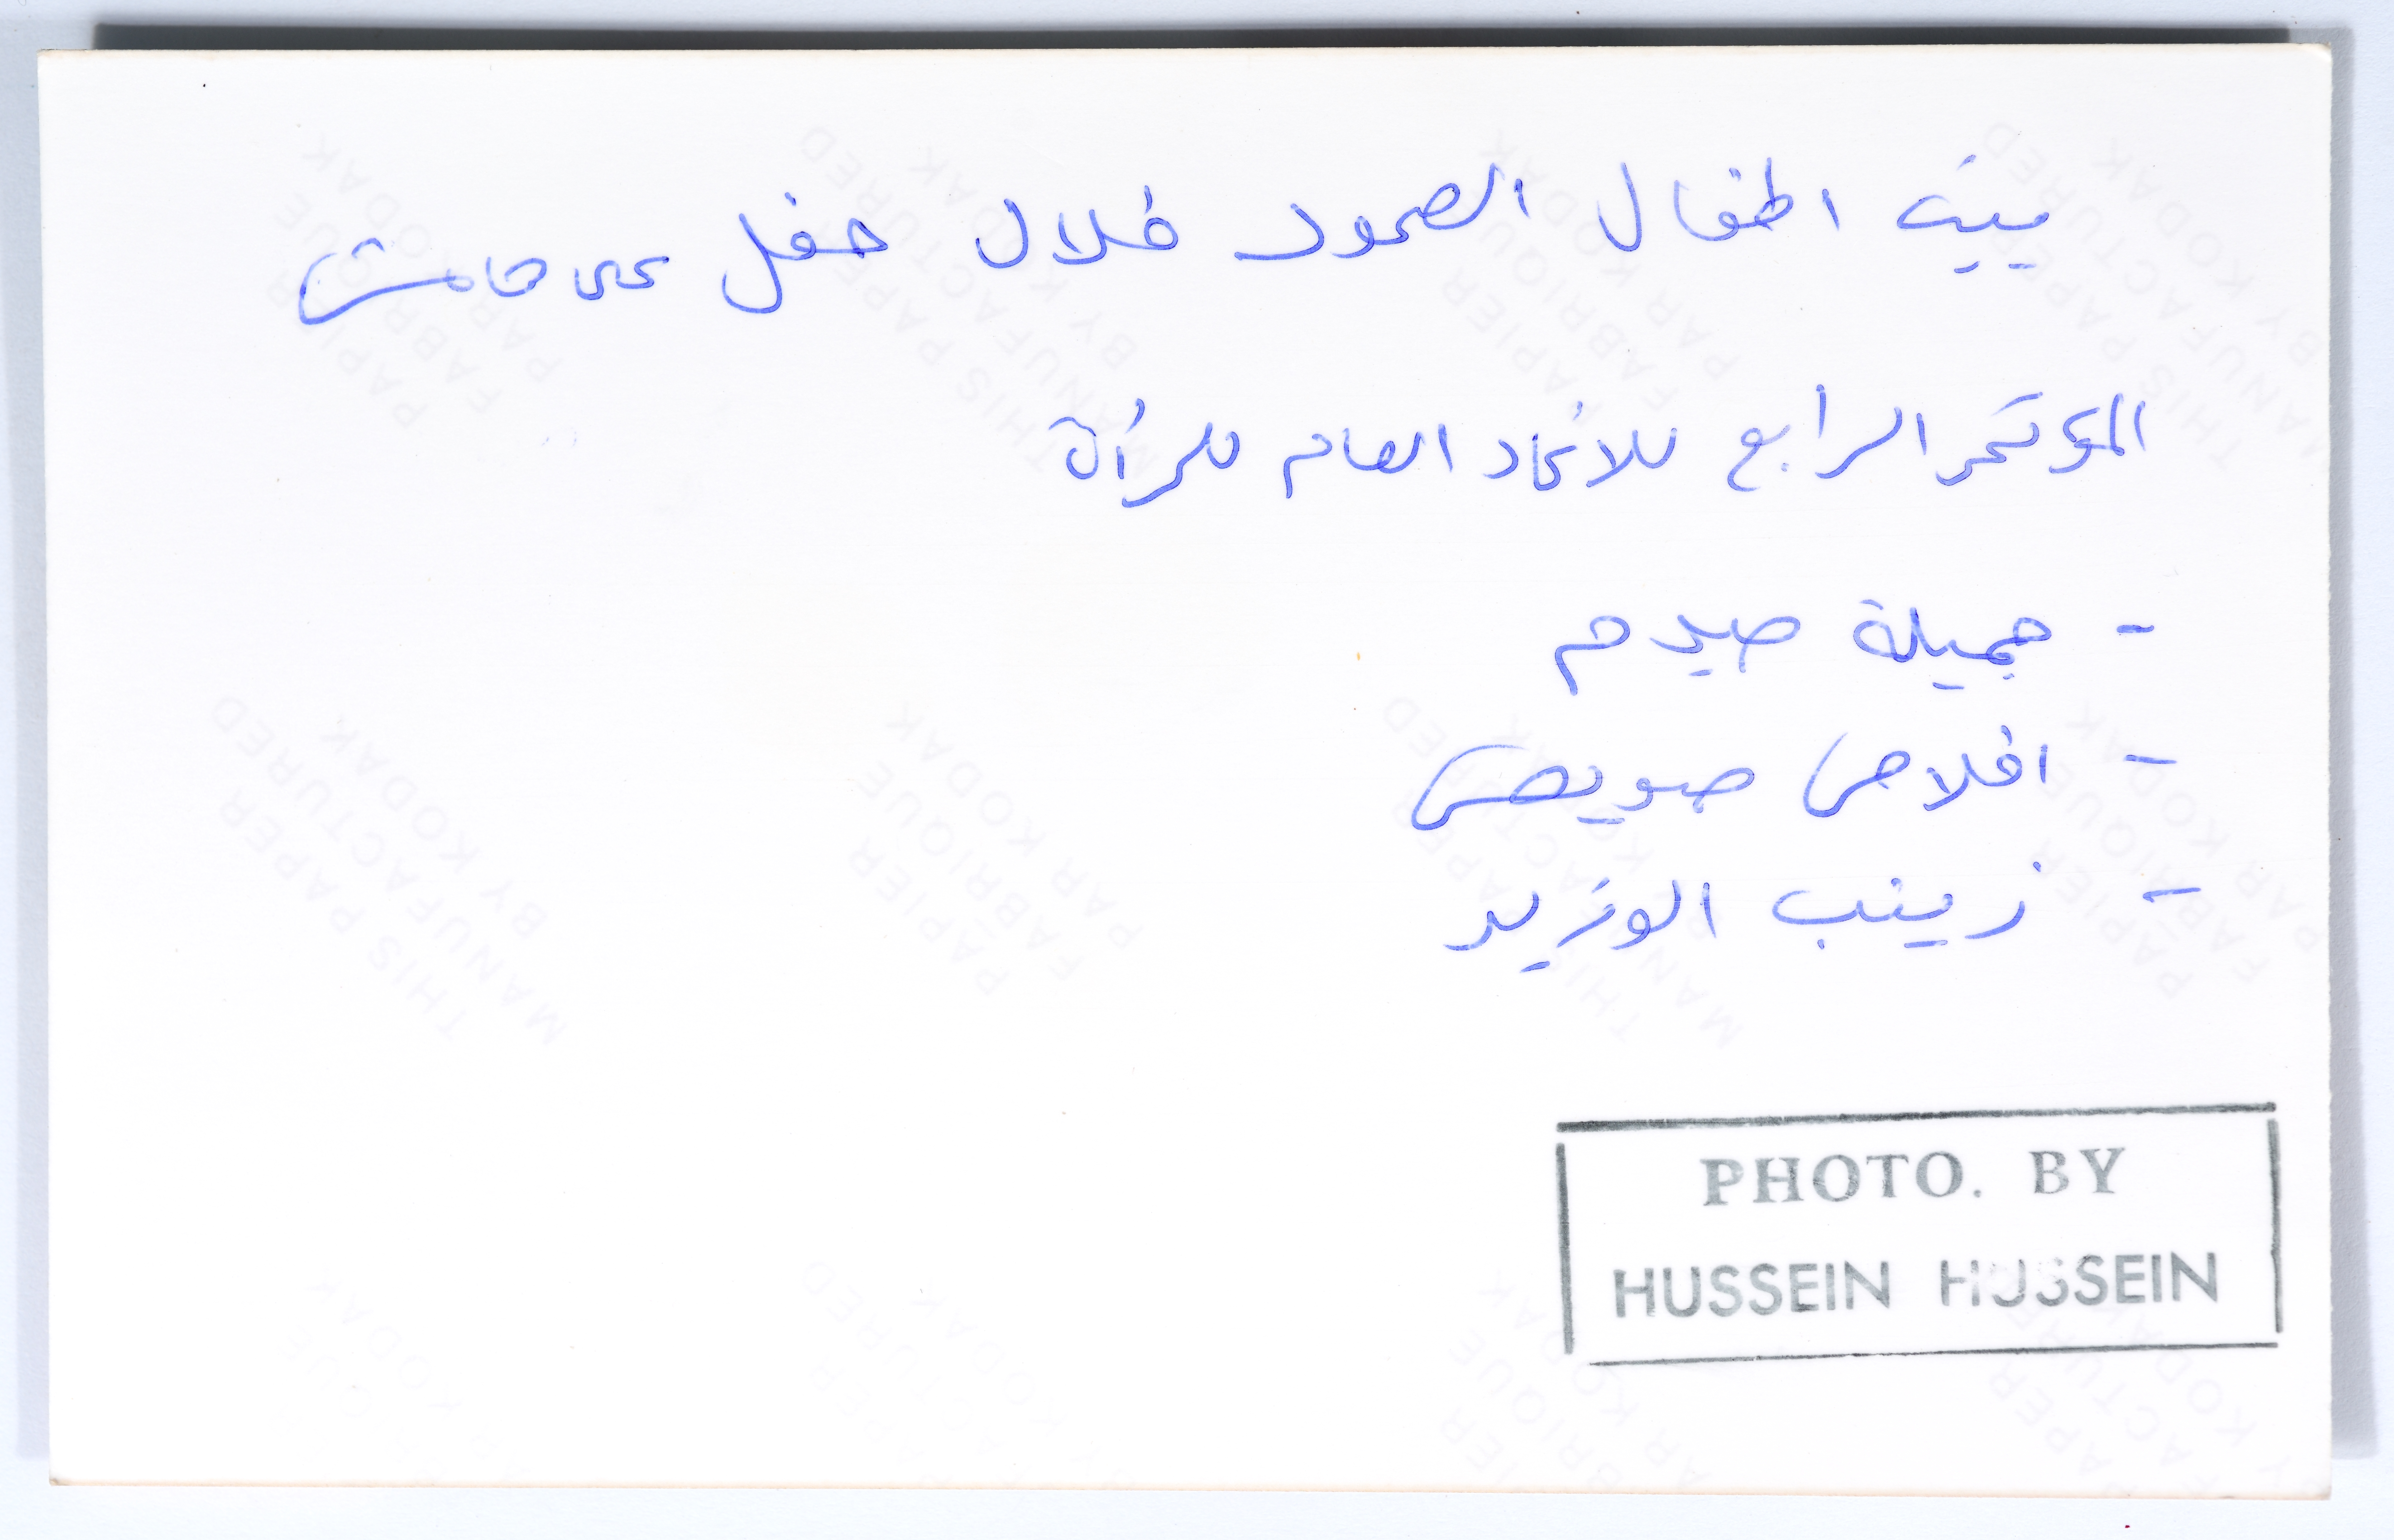 بيت اطفال الصمود خلال حفل على هامش
المؤتمر الرابع للاتحاد العام للمرأة
- جميلة صيدم
- افلاص صويص
- زينب الوزير
PHOTO. BY
HUSSEIN HUSSEIN
THIS PAPER
MANUFACTURED
BY KODAK
PAPIER
FABRIQUE
PAR KODAK